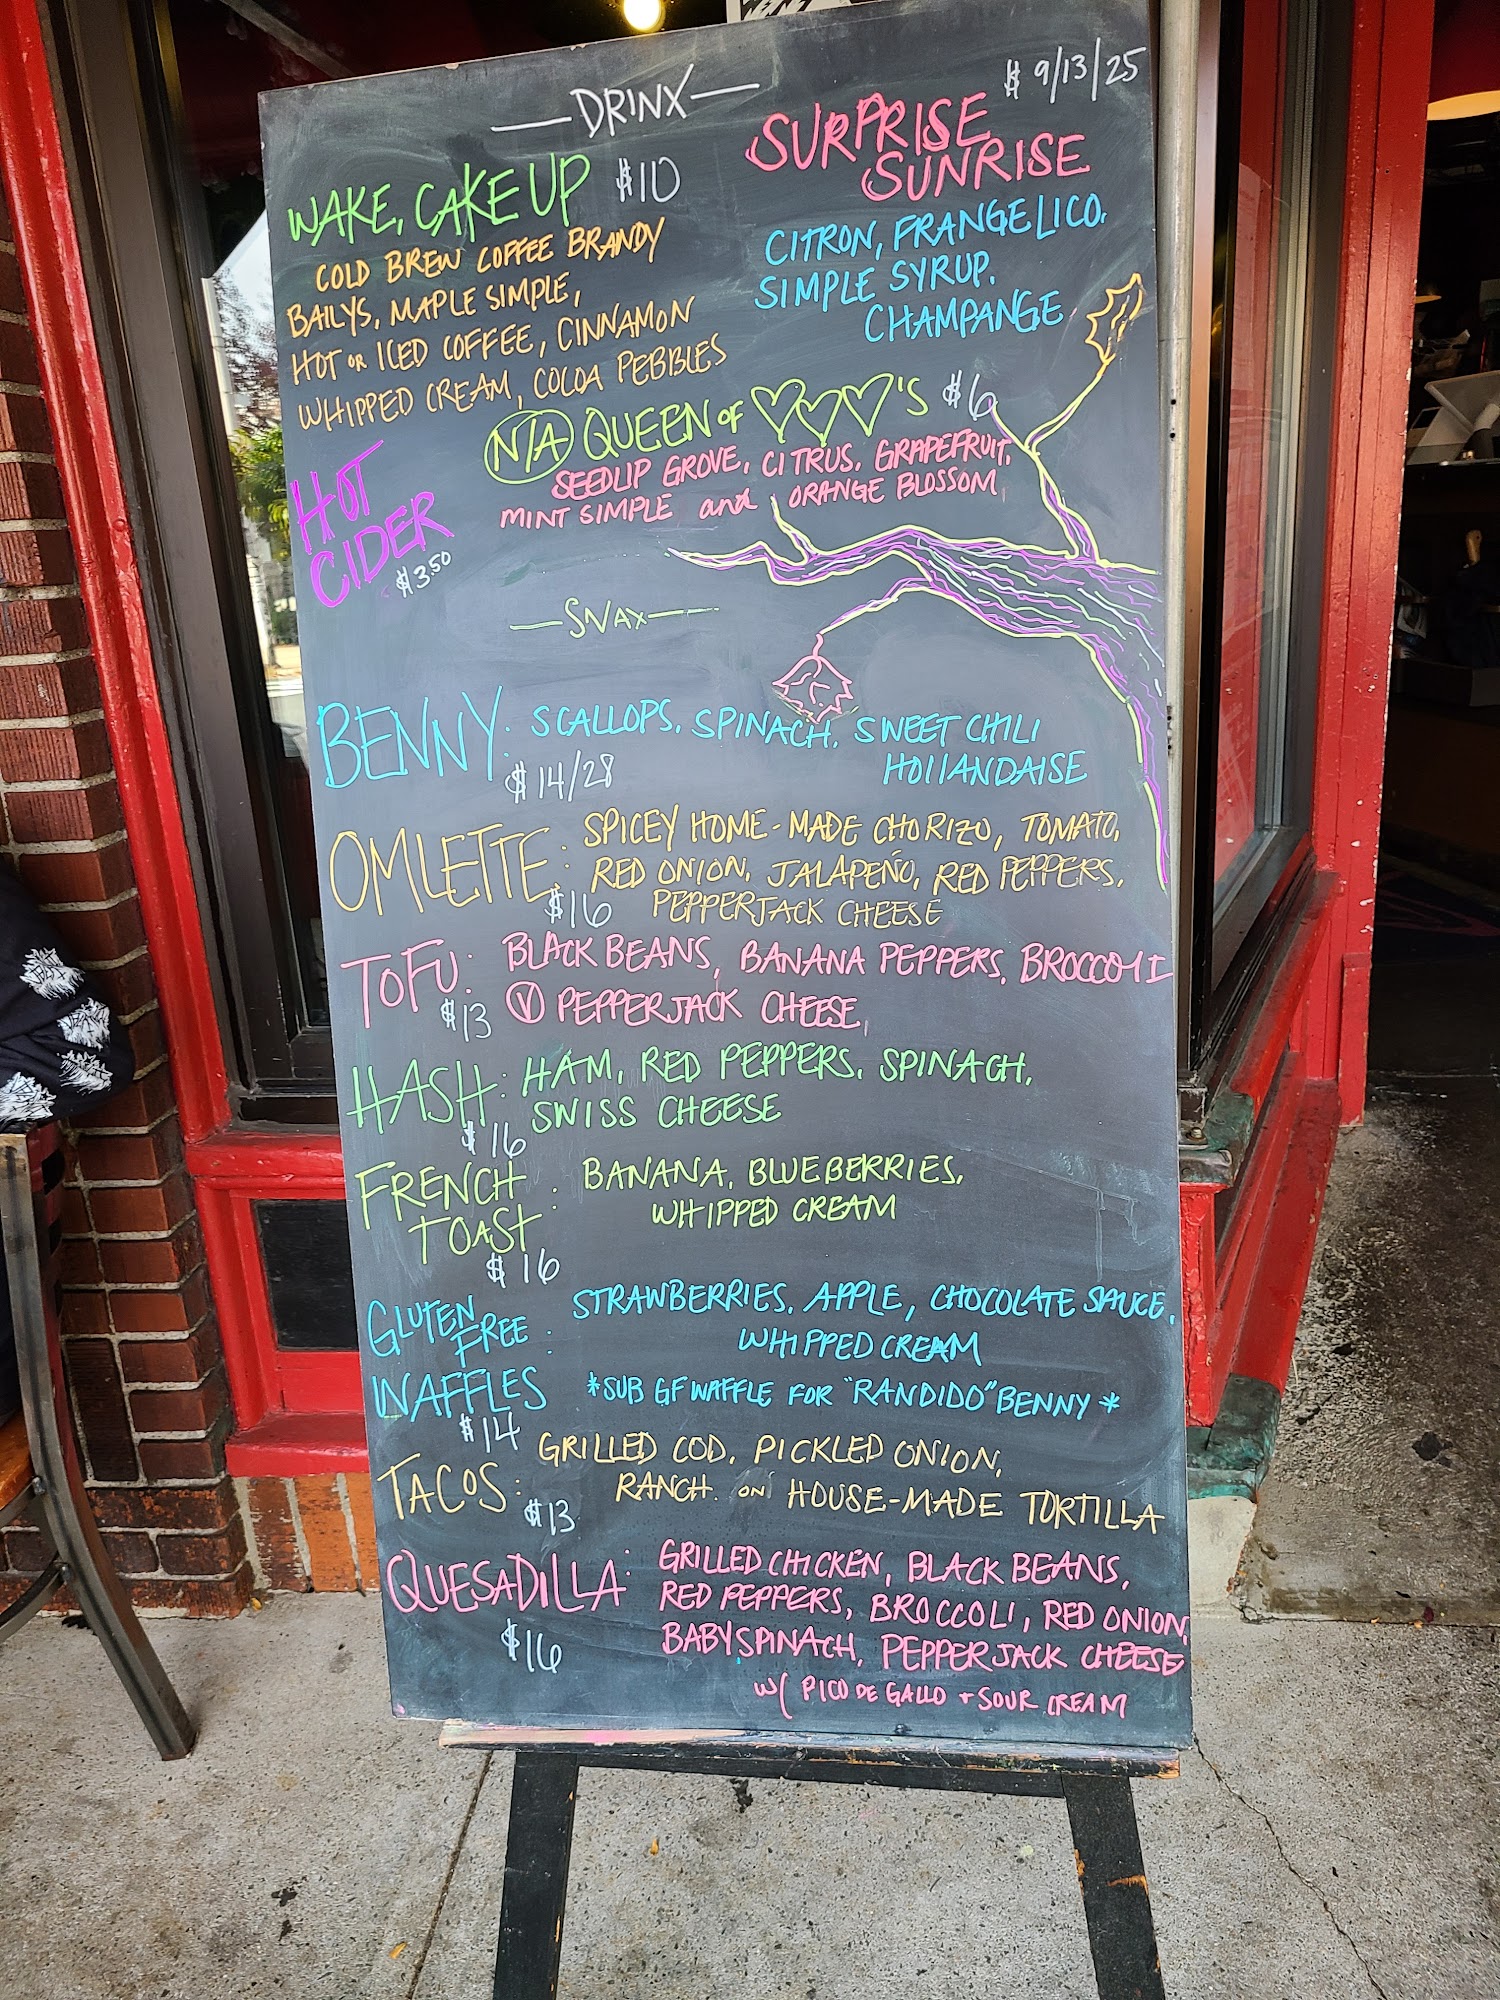 —DRINX—
$ 9/13/25
WAKE, CAKE UP $10
COLD BREW COFFEE BRANDY
BAILYS, MAPLE SIMPLE,
HOT OR ICED COFFEE, CINNAMON
WHIPPED CREAM, COCOA PEBBLES
SURPRISE
SUNRISE
CITRON, FRANGELICO,
SIMPLE SYRUP.
CHAMPANGE
N/A QUEEN OF ♡♡♡'S $6
SEEDLIP GROVE, CITRUS, GRAPEFRUIT,
MINT SIMPLE and ORANGE BLOSSOM,
HOT
CIDER
$3.50
—SNAX—
BENNY: SCALLOPS, SPINACH, SWEET CHILI
HOLLANDAISE
$14/28
OMLETTE: SPICEY HOME-MADE CHORIZO, TOMATO,
RED ONION, JALAPEÑO, RED PEPPERS,
$16 PEPPERJACK CHEESE
TOFU: BLACK BEANS, BANANA PEPPERS, BROCCOLI
$13 Ⓥ PEPPERJACK CHEESE,
HASH: HAM, RED PEPPERS, SPINACH,
SWISS CHEESE
$16
FRENCH
TOAST: BANANA, BLUEBERRIES,
WHIPPED CREAM
$16
GLUTEN
FREE
WAFFLES: STRAWBERRIES, APPLE, CHOCOLATE SAUCE,
WHIPPED CREAM
*SUB GF WAFFLE FOR "RANDIDO" BENNY*
$14
TACOS: GRILLED COD, PICKLED ONION,
RANCH. ON HOUSE-MADE TORTILLA
$13
QUESADILLA: GRILLED CHICKEN, BLACK BEANS,
RED PEPPERS, BROCCOLI, RED ONION,
BABY SPINACH, PEPPERJACK CHEESE
$16
W/ PICO DE GALLO + SOUR CREAM